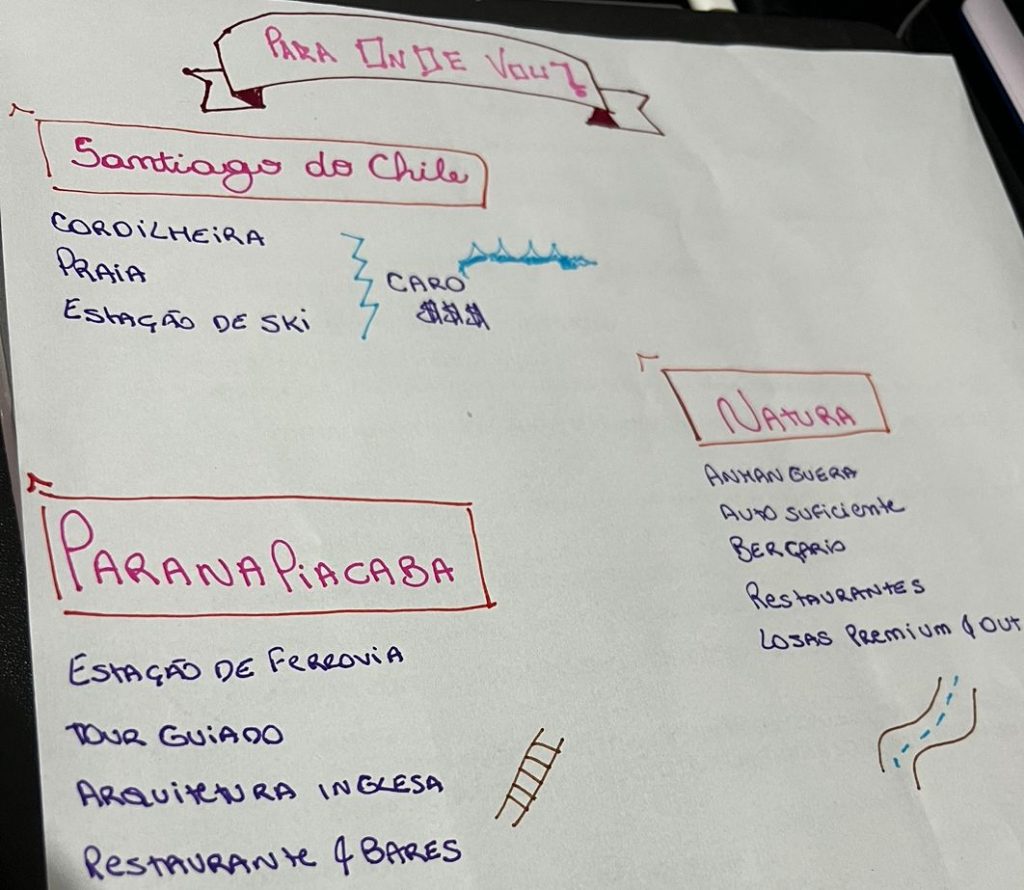 PARA ONDE VOU?
Santiago do Chile
CORDILHEIRA
PRAIA
ESTAÇÃO DE SKI
CARO
$$$
NATURA
ANHANGUERA
AUTO SUFICIENTE
BERÇARIO
RESTAURANTES
LOJAS PREMIUM & OUT
PARANAPIACABA
ESTAÇÃO DE FERROVIA
TOUR GUIADO
ARQUITETURA INGLESA
RESTAURANTE & BARES